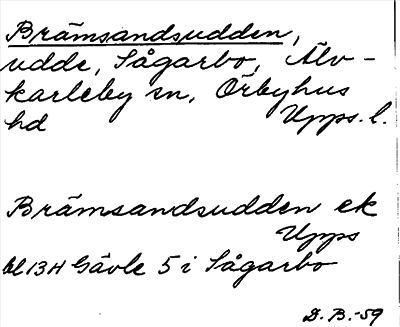 Brämsandsudden,
udde, Sågarbo, Älv-
karleby sn, Örbyhus
hd Upps. l.
Brämsandsudden ek
Upps
bl 13H Gävle 5 i Sågarbo
D. B. -59